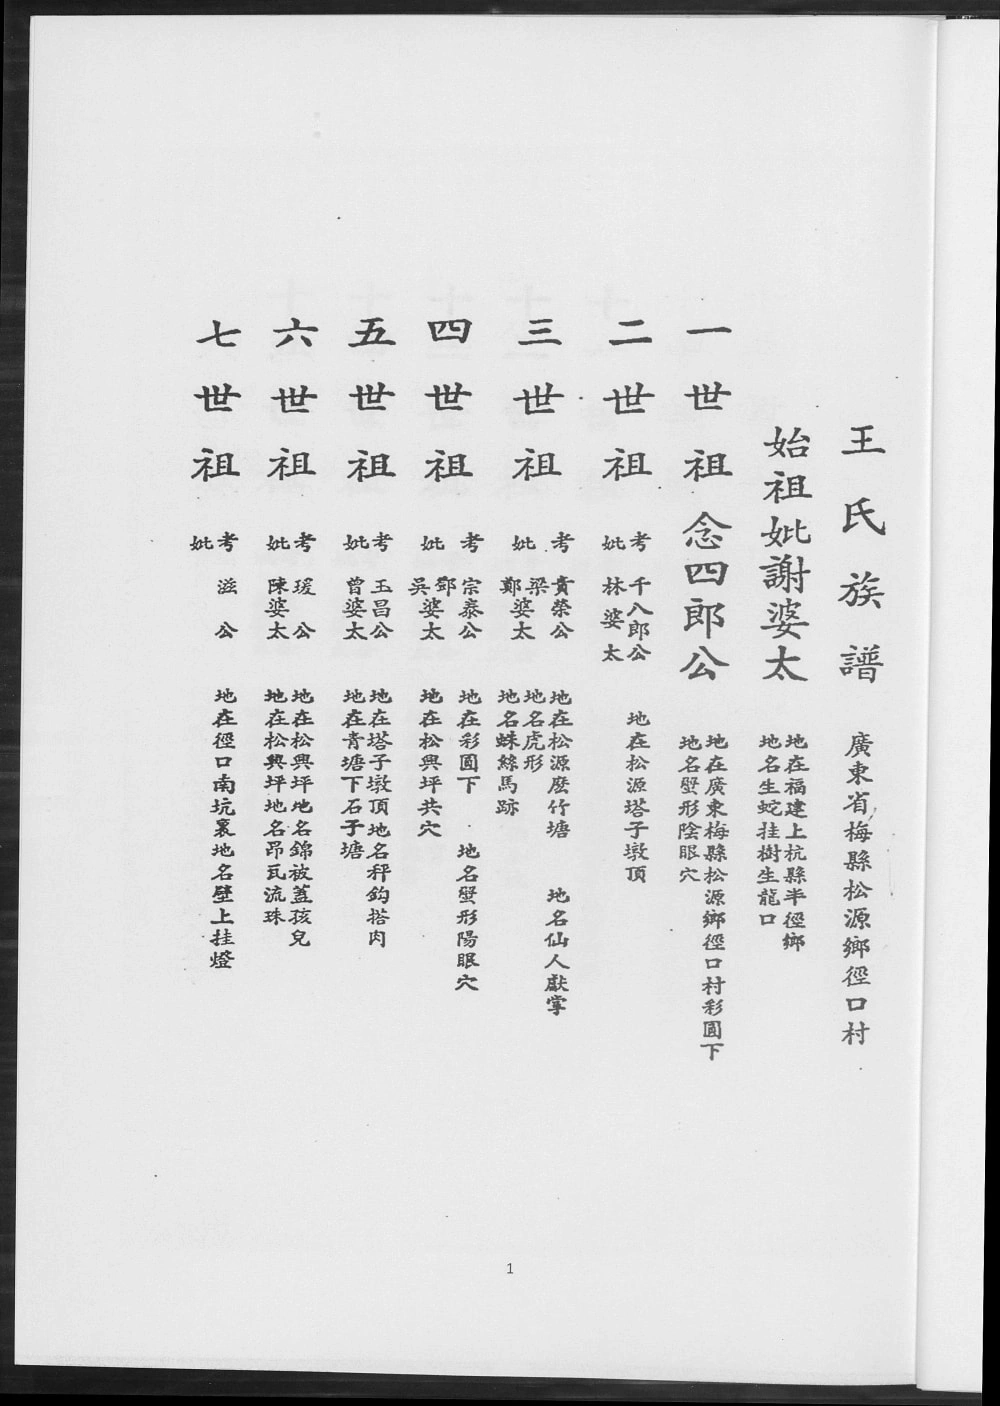 王氏族譜 廣東省梅縣松源鄉徑口村
始祖妣謝婆太 地在福建上杭縣半徑鄉
地名生蛇挂樹生龍口
一世祖 念四郎公 地在廣東梅縣松源鄉徑口村彩圓下
地名蟹形陰眼穴
二世祖 考 千八郎公 地在松源塔子墩頂
妣 林婆太
三世祖 考 貴榮公 地在松源麽竹塘 地名仙人獻掌
妣 梁 鄭婆太 地名虎形
地名蛛絲馬跡
四世祖 考 宗泰公 地在彩圓下 地名蟹形陽眼穴
妣 鄧 吳婆太 地在松興坪共穴
五世祖 考 玉昌公 地在塔子墩頂地名秤鈎搭肉
妣 曾婆太 地在青塘下石子塘
六世祖 考 瑗公 地在松興坪地名錦被蓋孩兒
妣 陳婆太 地在松興坪地名昂瓦流珠
七世祖 考 滋公 地在徑口南坑裏地名壁上挂燈
妣
1